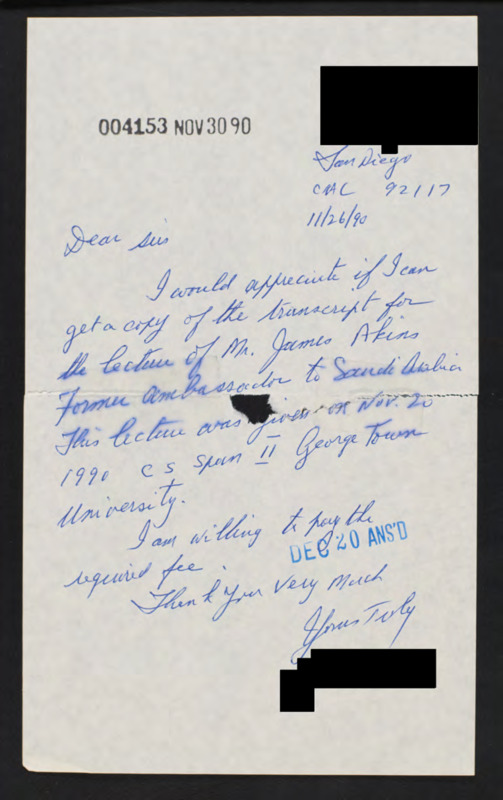 004153 NOV 30 90
San Diego
CAL 92117
11/26/90
Dear Sirs
I would appreciate if I can
get a copy of the transcript for
the lecture of Mr. James Akins
Former ambassador to Saudi Arabia
This lecture was given on Nov. 20
1990 C S Span II George Town
University.
I am willing to pay the
DEC 20 ANS'D
required fee.
Thank You Very Much
Yours Truly